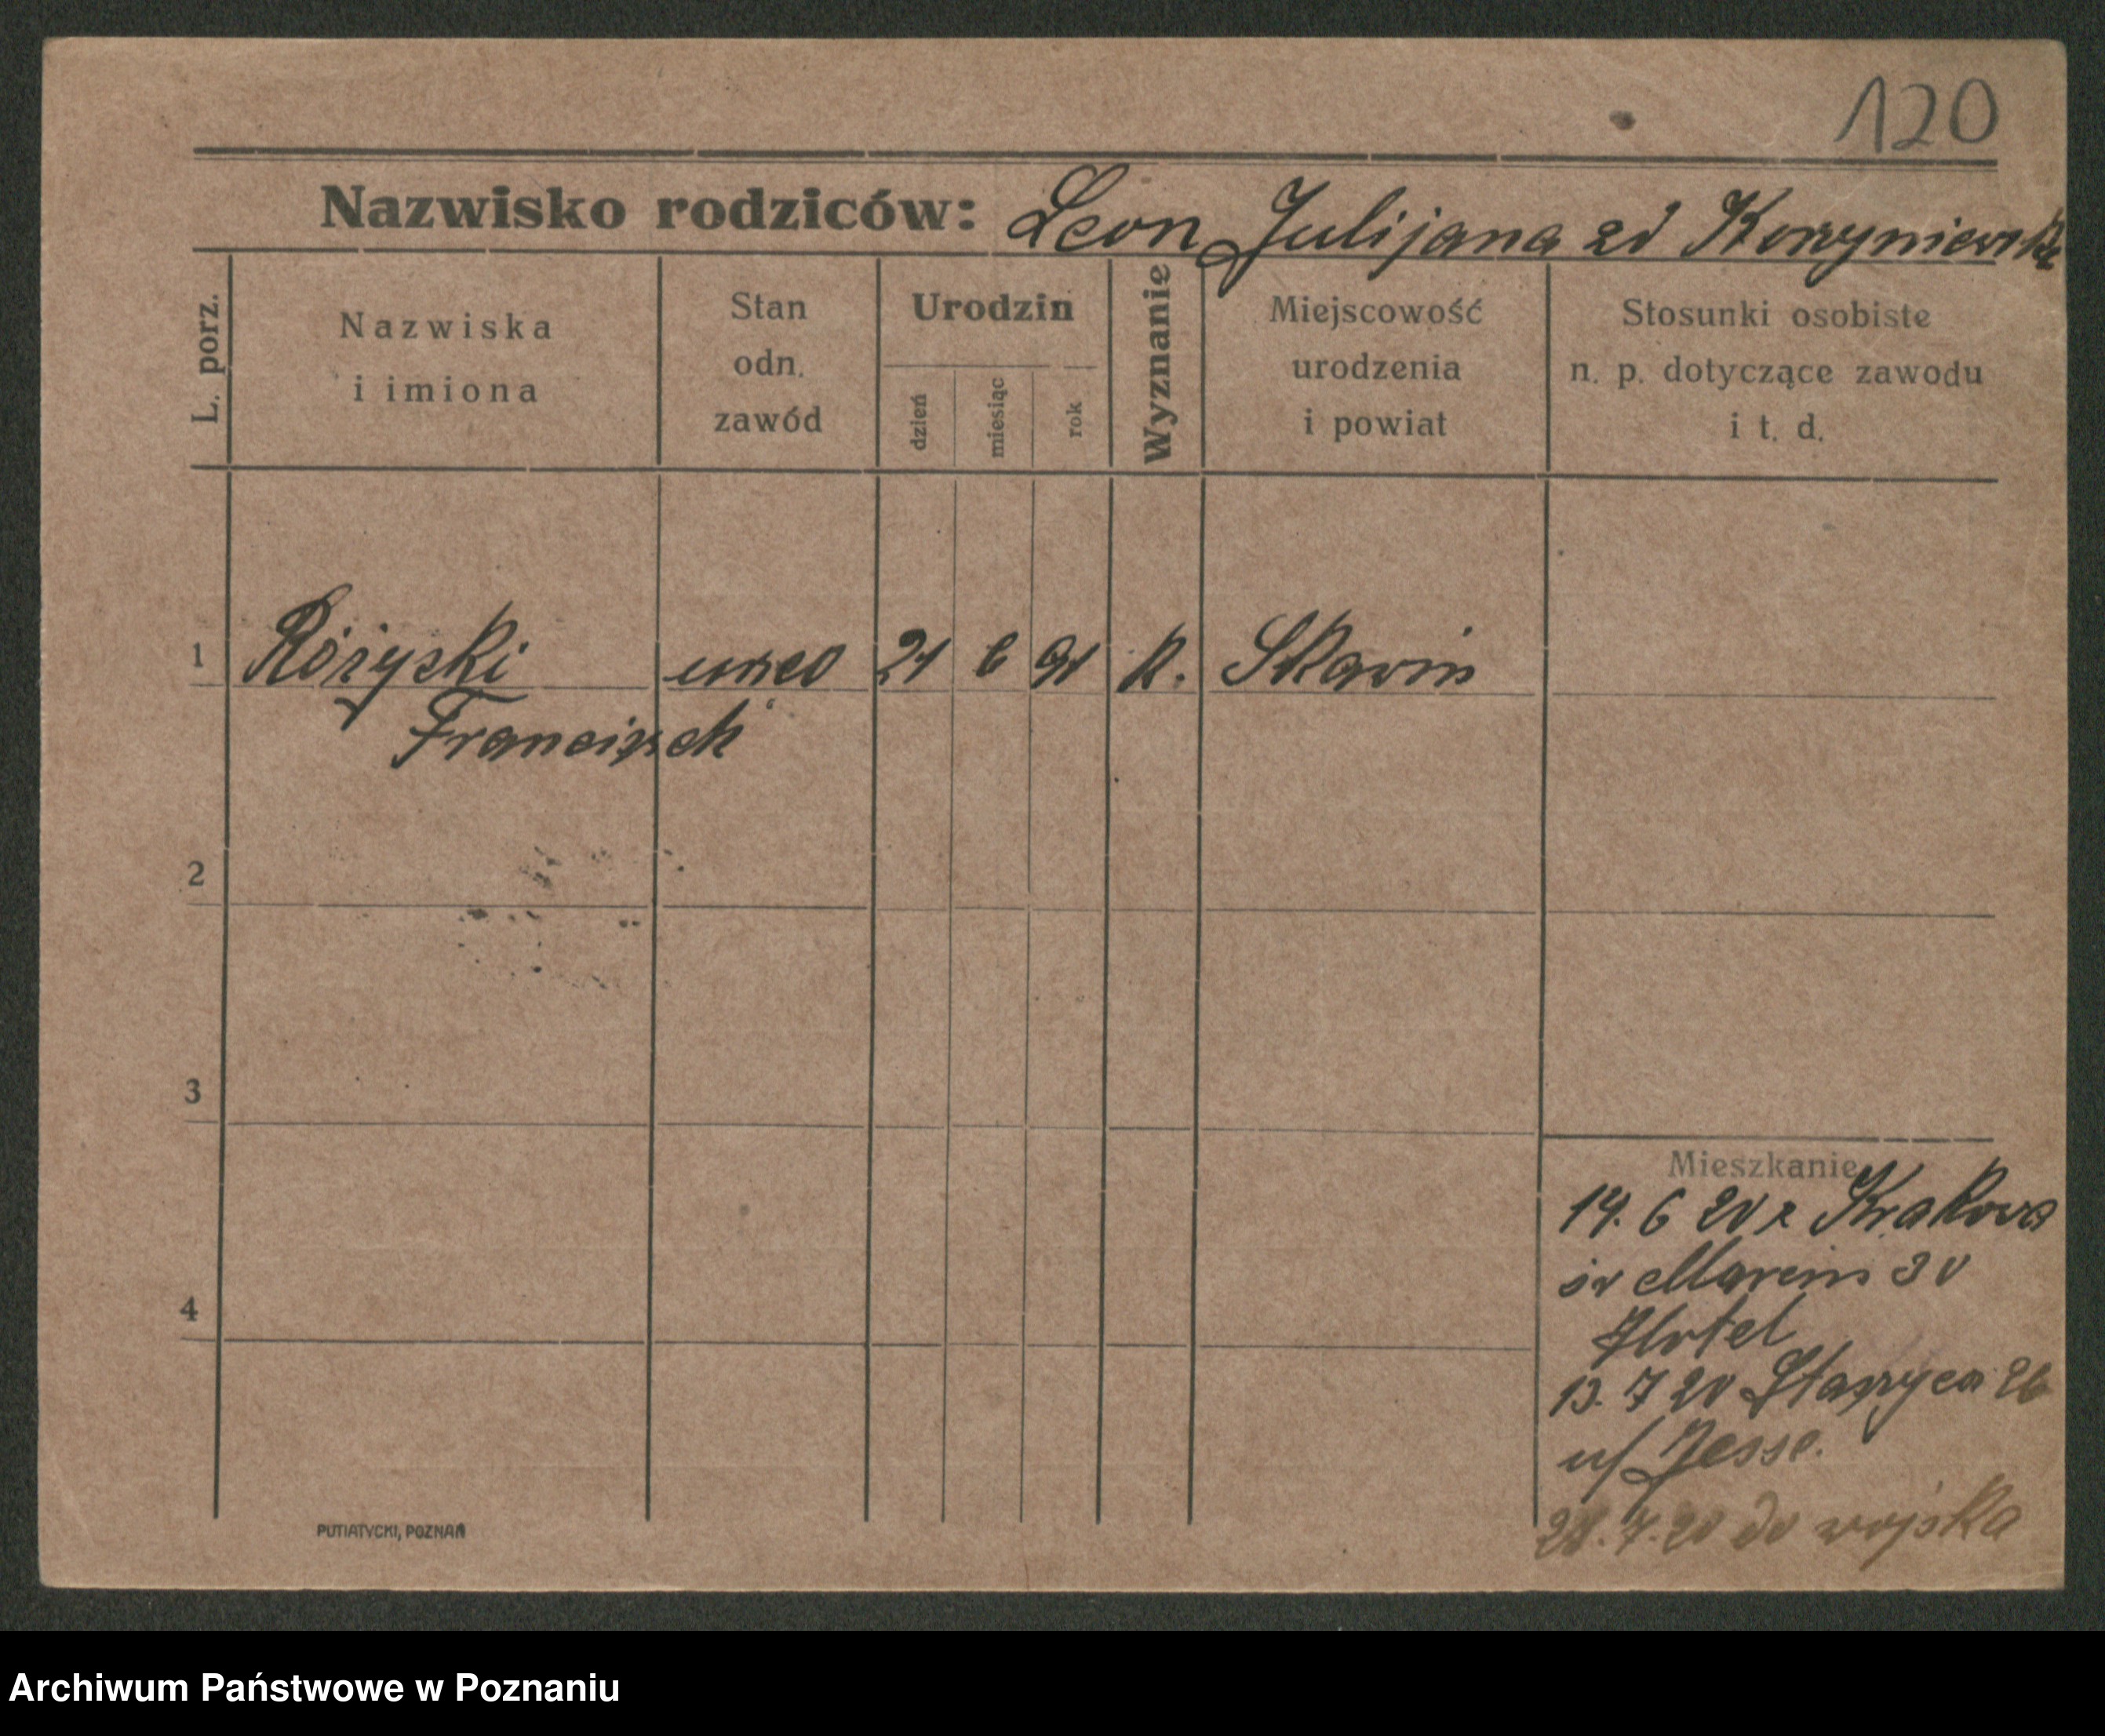 120
Nazwisko rodziców: Leon Julijana zd
L. porz.
Nazwiska
i imiona
Stan
odn.
zawód
Urodzin
dzień
miesiąc
rok
Wyznanie
Miejscowość
urodzenia
i powiat
Stosunki osobiste
n. p. dotyczące zawodu
i t. d.
1 Różyski 21 6 91 k.
Franciszek
2
3
4
Mieszkanie
14. 6 20 z Krakowa
św Marcin 30
Hotel
13. 7 20 26
u/ Jesse.
28.7.20 do wojska
PUTIATYCKI, POZNAŃ
Archiwum Państwowe w Poznaniu